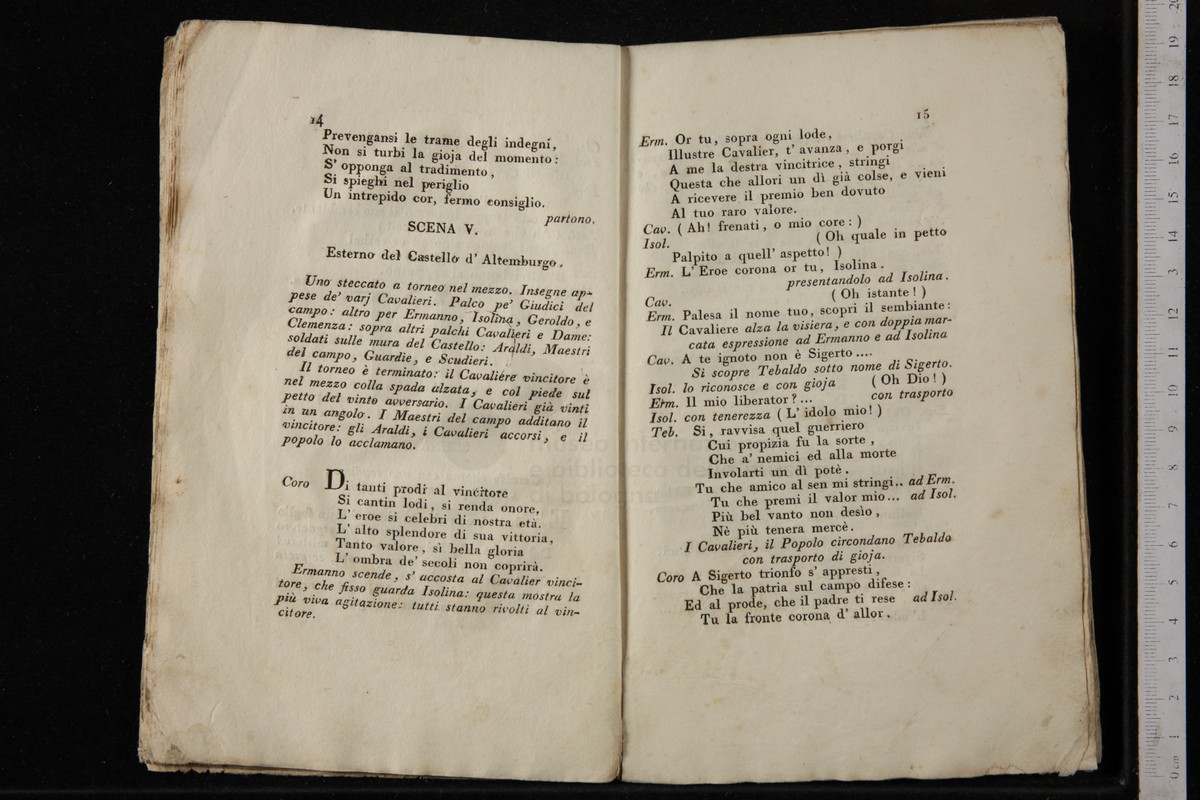 14
Prevengansi le trame degli indegni,
Non si turbi la gioja del momento:
S' opponga al tradimento,
Si spieghi nel periglio
Un intrepido cor, fermo consiglio.
partono.
SCENA V.
Esterno del Castello d' Altemburgo.
Uno steccato a torneo nel mezzo. Insegne ap-
pese de' varj Cavalieri. Palco pe' Giudici del
campo: altro per Ermanno, Isolina, Geroldo, e
Clemenza: sopra altri palchi Cavalieri e Dame:
soldati sulle mura del Castello: Araldi, Maestri
del campo, Guardie, e Scudieri.
Il torneo è terminato: il Cavaliere vincitore è
nel mezzo colla spada alzata, e col piede sul
petto del vinto avversario. I Cavalieri già vinti
in un angolo. I Maestri del campo additano il
vincitore: gli Araldi, i Cavalieri accorsi, e il
popolo lo acclamano.
Coro Di tanti prodi al vincitore
Si cantin lodi, si renda onore,
L' eroe si celebri di nostra età.
L' alto splendore di sua vittoria,
Tanto valore, sì bella gloria
L' ombra de' secoli non coprirà.
Ermanno scende, s' accosta al Cavalier vinci-
tore, che fisso guarda Isolina: questa mostra la
più viva agitazione: tutti stanno rivolti al vin-
citore.
15
Erm. Or tu, sopra ogni lode,
Illustre Cavalier, t' avanza, e porgi
A me la destra vincitrice, stringi
Questa che allori un dì già colse, e vieni
A ricevere il premio ben dovuto
Al tuo raro valore.
Cav. (Ah! frenati, o mio core:)
Isol. (Oh quale in petto
Palpito a quell' aspetto!)
Erm. L' Eroe corona or tu, Isolina.
presentandolo ad Isolina.
Cav. (Oh istante!)
Erm. Palesa il nome tuo, scopri il sembiante:
Il Cavaliere alza la visiera, e con doppia mar-
cata espressione ad Ermanno e ad Isolina
Cav. A te ignoto non è Sigerto....
Si scopre Tebaldo sotto nome di Sigerto.
Isol. lo riconosce e con gioja (Oh Dio!)
Erm. Il mio liberator?... con trasporto
Isol. con tenerezza (L' idolo mio!)
Teb. Si, ravvisa quel guerriero
Cui propizia fu la sorte,
Che a' nemici ed alla morte
Involarti un dì potè.
Tu che amico al sen mi stringi.. ad Erm.
Tu che premi il valor mio... ad Isol.
Più bel vanto non desìo,
Nè più tenera mercè.
I Cavalieri, il Popolo circondano Tebaldo
con trasporto di gioja.
Coro A Sigerto trionfo s' appresti,
Che la patria sul campo difese:
Ed al prode, che il padre ti rese ad Isol.
Tu la fronte corona d' allor.